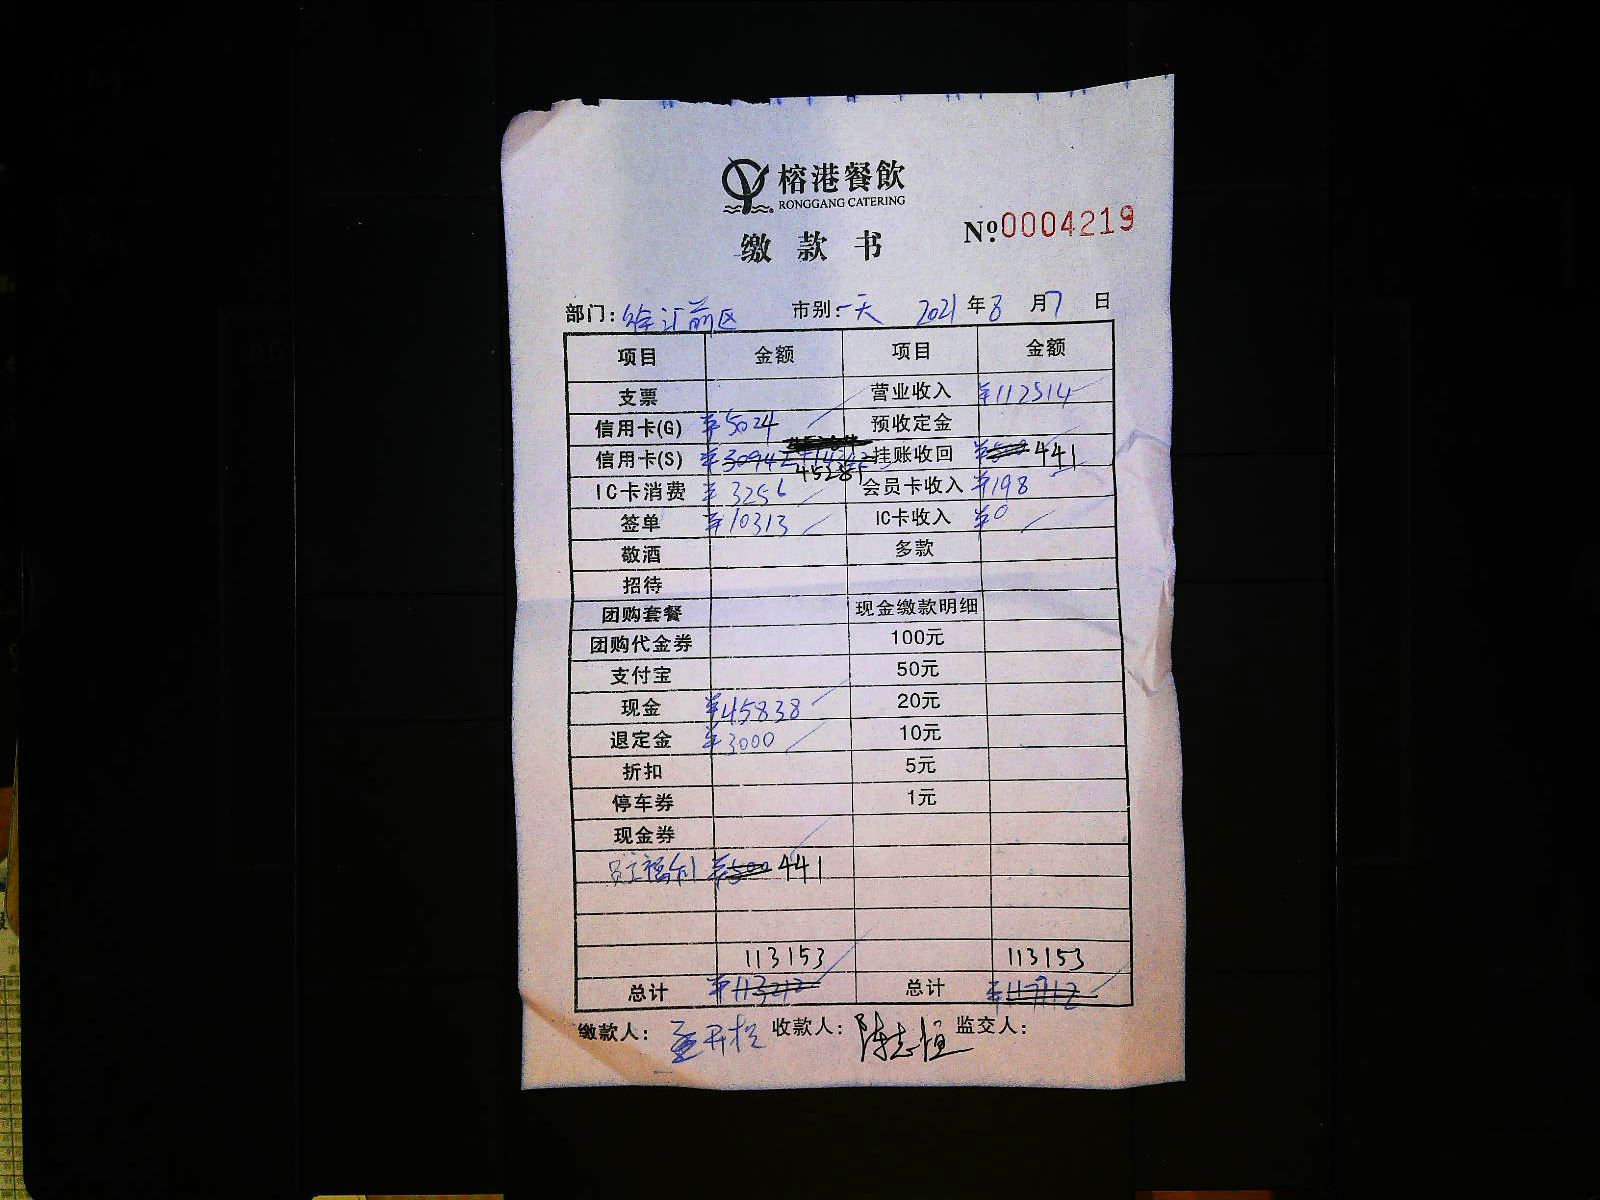 榕港餐飲
RONGGANG CATERING
缴款书 Nº.0004219
部门:徐汇前区 市别:一天 2021年8月7日
项目 金额 项目 金额
支票 营业收入 ¥112514
信用卡(G) ¥5024 预收定金
信用卡(S) 45281 挂账收回 441
IC卡消费 ¥3256 会员卡收入 ¥198
签单 ¥10313 IC卡收入 ¥0
敬酒 多款
招待
团购套餐 现金缴款明细
团购代金券 100元
支付宝 50元
现金 ¥45838 20元
退定金 ¥3000 10元
折扣 5元
停车券 1元
现金券
员工福利 441
113153 113153
总计 总计
缴款人: 收款人:陈志恒 监交人: